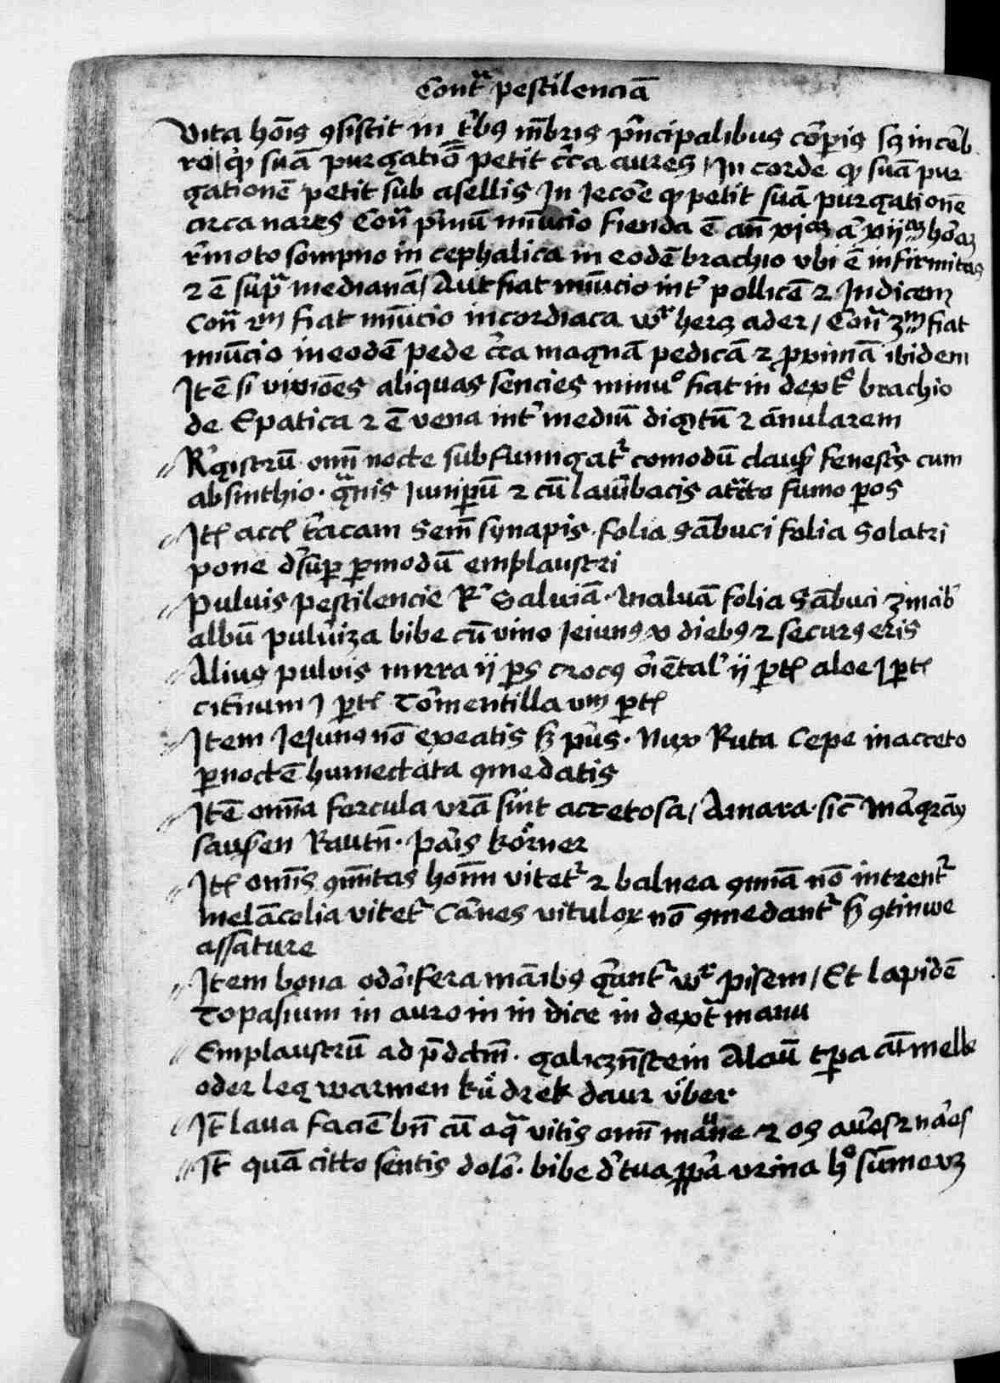 Contͣ pestilenciā
Vita hoīs ꝯsistit in tͥbꝫ mēbris pͥncipalibus corꝑis sꝫ in cēb
ro / qͥ suā purgatiōꝫ petit cͥca aures / In corde qͥ suā pur
gationē petit sub asellis In Iecore qͥ petit suā purgationē
circa nares Contͣ pͥmū minucio fienda ē an̄ xj aͬ xij horā
rͤmoto sompno in cephalica in eodē brachio vbi ē infirmitas
⁊ ē supͣ medianā / Aut fiat minucio intͤ pollicē ⁊ Indicem
Contͣ 2m fiat minucio in cordiaca vͬ hercz ader / Contͣ 3m fiat
minucio in eodē pede cͥca magnā pedicā ⁊ ꝓximā ibidem
Itē si vixiones aliquas sencies minuͦ fiat in dextͦ brachio
de Epatica ⁊ ē vena intͤ mediū digitū ⁊ anularem
Rͤgistrū omī nocte subfumigatͬ comodū clausͥ fenestͥs cum
absinthio · gͣnis Iuniꝑū ⁊ cū laurībacis attͣcto fumo ꝑ os
Itꝫ accꝫ tͥacam Semē synapis · folia sābuci folia Solatri
pone dͤsuꝑ ꝑ modū emplaustri
Puluis pestilencie Rͤ Saluiā · Maluā folia sābuci zinzibͤ
albū pulūiza bibe cū vino Ieiunꝫ v diebꝫ ⁊ securꝫ eris
Aliuꝫ puluis mirra ij ꝑs crocꝫ oriētalͥ ij ꝑtꝫ aloe j ꝑtꝫ
citrinum j ꝑtꝫ Tormentilla vm ꝑtꝫ
Item Ieiunꝫ nō exeatis sꝫ pͥus · Nux Ruta Cepe in acceto
ꝑ noctē humectata ꝯmedatis
Itē omīa fercula vrā sint accetosa / Amara · sic Margrām
saufen Rautn̄ · Paris kőrner
Itꝫ omīs qmītas hominū vitetͬ ⁊ balnea qmā nō intrentͬ
melācolia vitetͬ Carnes vitulorꝝ nō ꝯmedantͬ sꝫ ꝯtinwe
assature
Item bona odorifera māibꝫ gͤrantͬ vͬ pisem / Et lapidē
Topasium in auro in in dice in dextͣ manu
Emplaustrū ad p̄dctm̄ · galiczn̄stein Aloū tͥꝑa cū melle
oder leg warmen kű drek daur űber
Itē laua faciē bn̄ cū aqͣ vitis omī mane ⁊ os aures ⁊ nares
Itē quā citto sentis dolorē · bibe dͤ tua ꝓpͥa vrina hͦ sūmovꝫ